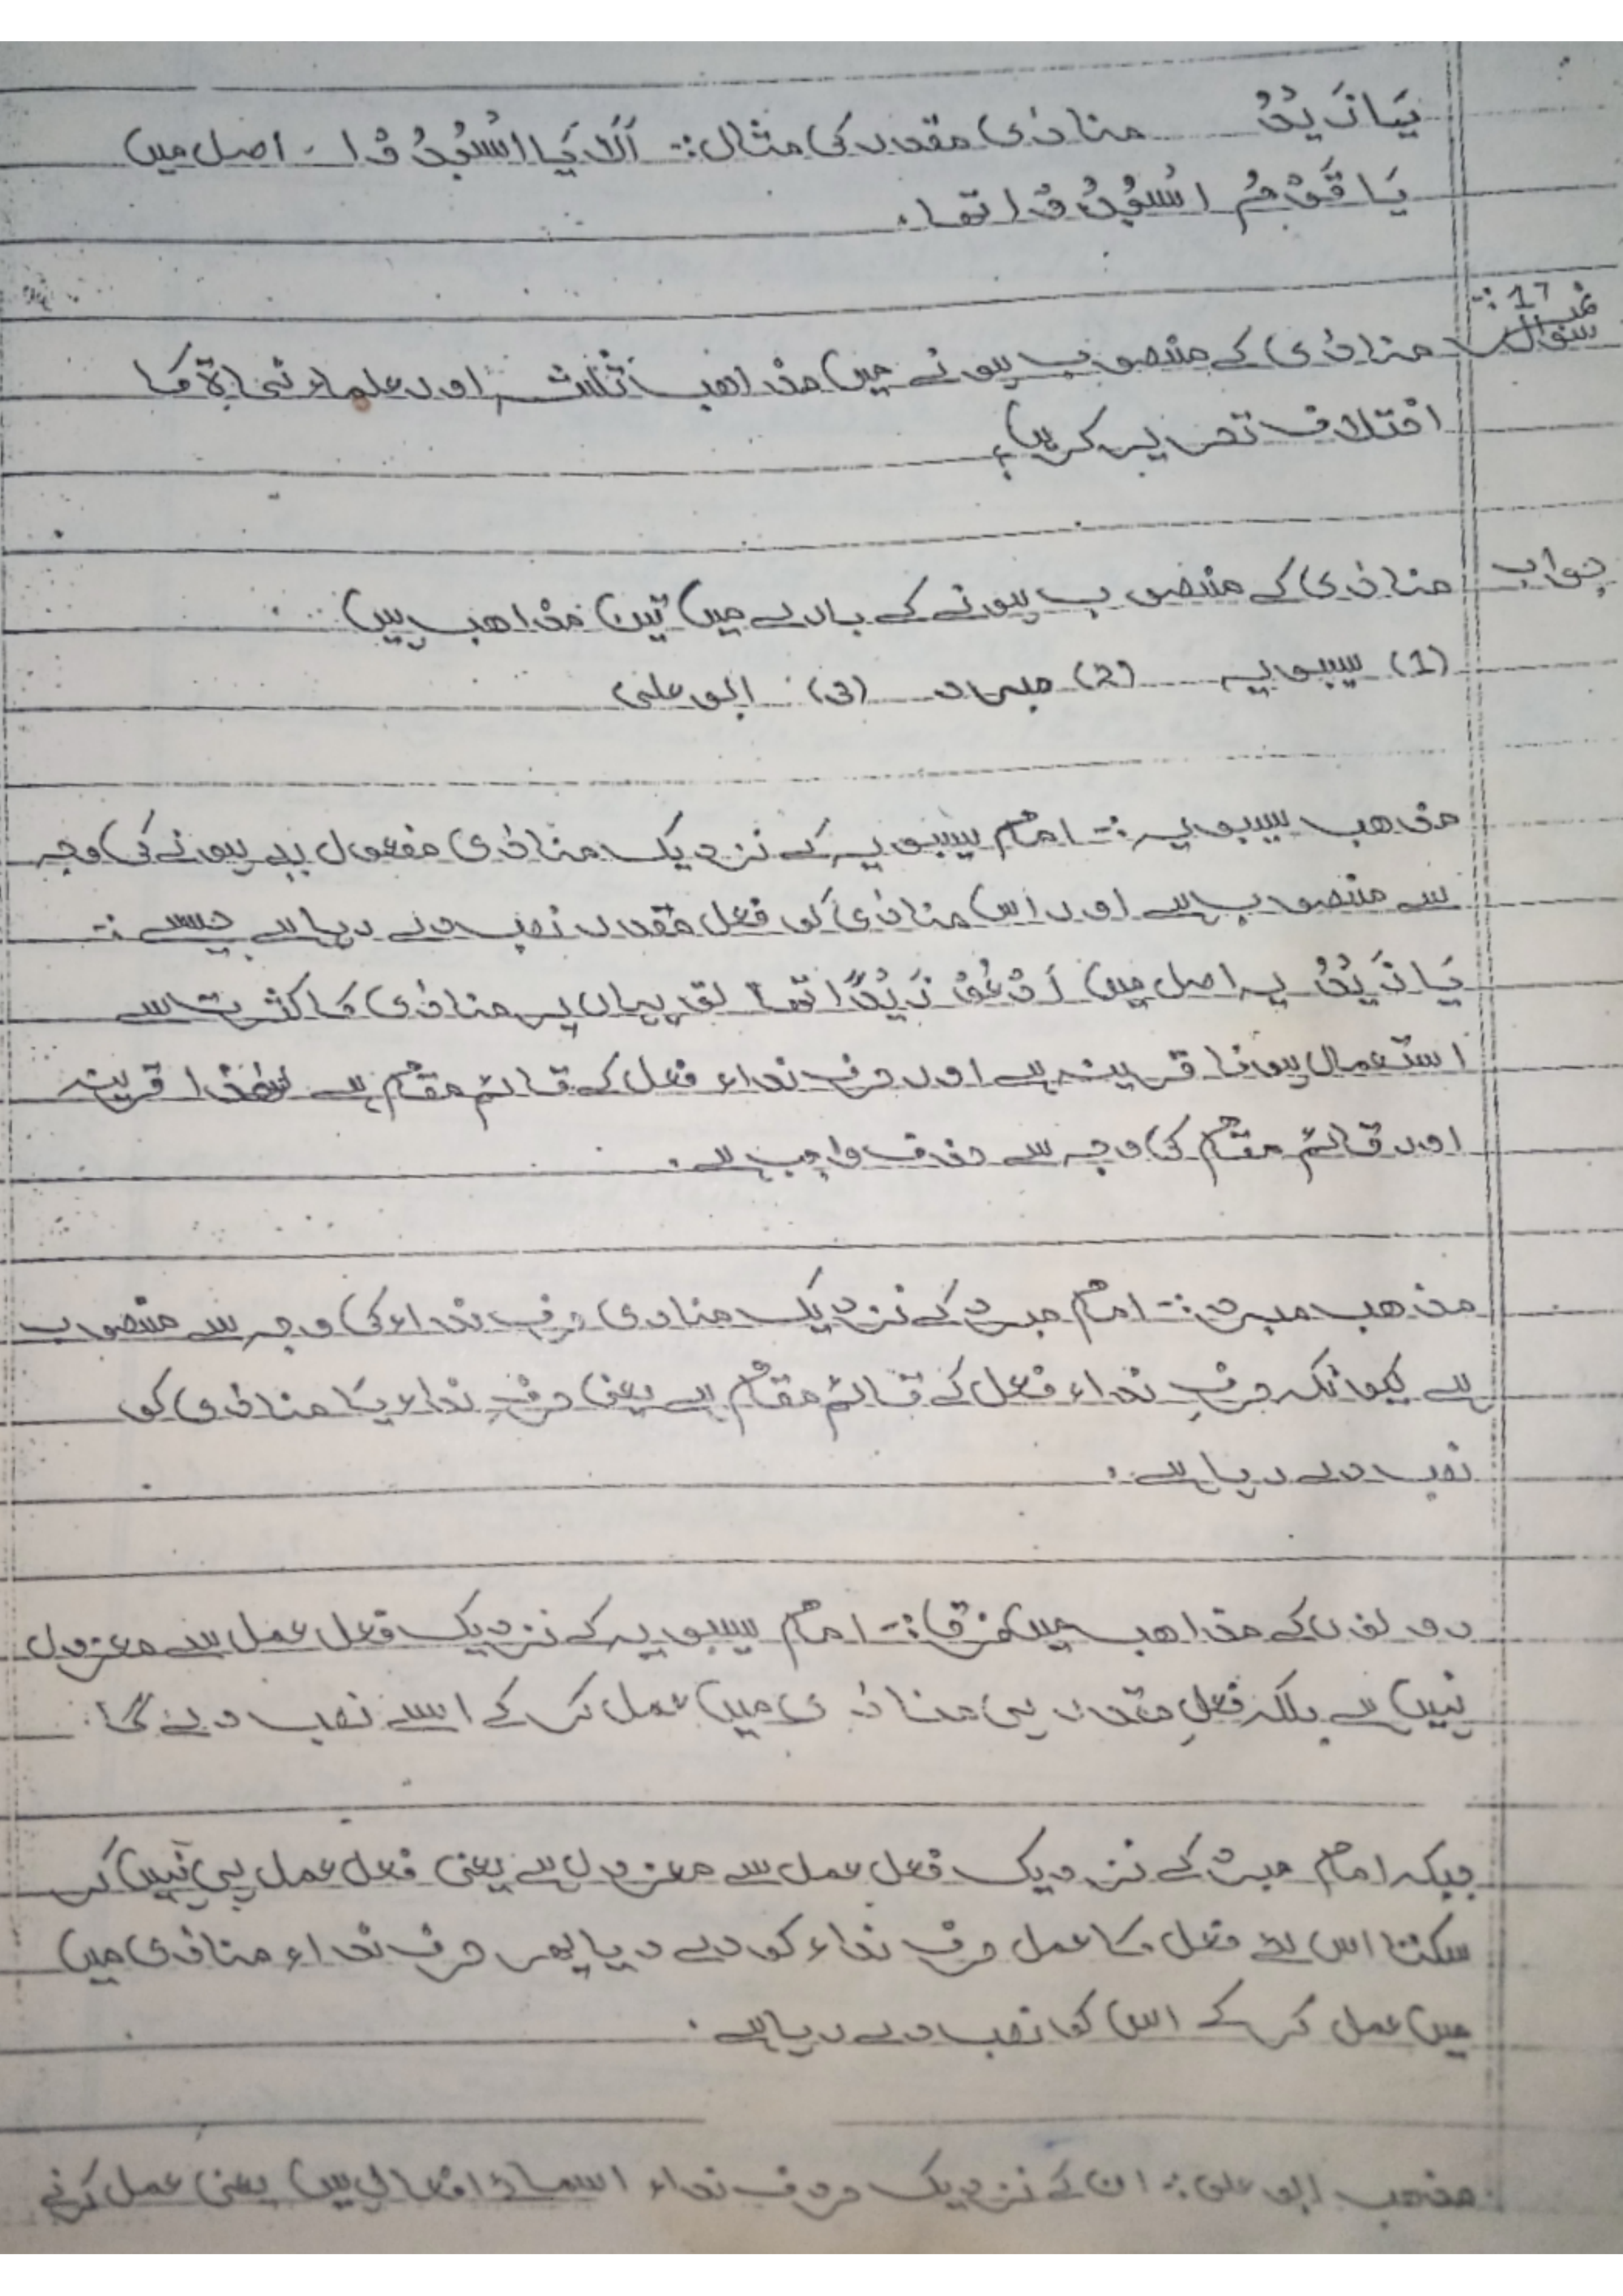 یَا زَیْدُ منادٰی مقدر کی مثال :- اَلَا یَا اسْجُدُوْا - اصل میں
یَا قَوْمُ اسْجُدُوْا تھا۔
سوال نمبر 17 :-
منادٰی کے منصوب ہونے میں مذاھب ثلٰثہ اور علماء نحاۃ کا
اختلاف تحریر کریں؟
جواب
منادٰی کے منصوب ہونے کے بارے میں تین مذاھب ہیں
(1) سیبویہ (2) مبرد (3) ابو علی
مذھب سیبویہ :- امام سیبویہ کے نزدیک منادٰی مفعول بہ ہونے کی وجہ
سے منصوب ہے اور اس منادٰی کو فعل مقدر نصب دے رہا ہے جیسے :-
یَا زَیْدُ یہ اصل میں اَدْعُوْ زَیْدًا تھا تو یہاں پر منادٰی کا کثرت سے
استعمال ہونا قرینہ ہے اور حرف نداء فعل کے قائم مقام ہے لھٰذا قرینہ
اور قائم مقام کی وجہ سے حذف واجب ہے۔
مذھب مبرد :- امام مبرد کے نزدیک منادی حرف نداء کی وجہ سے منصوب
ہے کیونکہ حرفِ نداء فعل کے قائم مقام ہے یعنی حرفِ نداء یَا منادٰی کو
نصب دے رہا ہے۔
دونوں کے مذاھب میں فرق :- امام سیبویہ کے نزدیک فعل عمل سے معزول
نہیں ہے بلکہ فعلِ مقدر ہی منادٰی میں عمل کر کے اسے نصب دے گا۔
جبکہ امام مبرد کے نزدیک فعل عمل سے معزول ہے یعنی فعل عمل ہی نہیں کر
سکتا اس لئے فعل کا عمل حرف نداء کو دے دیا پھر حرف نداء منادٰی میں
میں عمل کر کے اس کو نصب دے رہا ہے۔
مذھب ابو علی :- ان کے نزدیک حروف نداء اسمائے افعال ہیں یعنی عمل کرنے